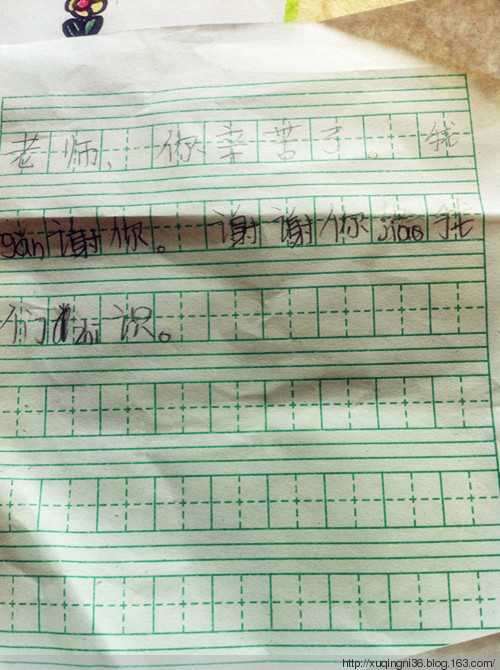 老师，你辛苦了。我
gǎn谢你。谢谢你jiao我
们zhi识。
http://xuqingni36.blog.163.com/